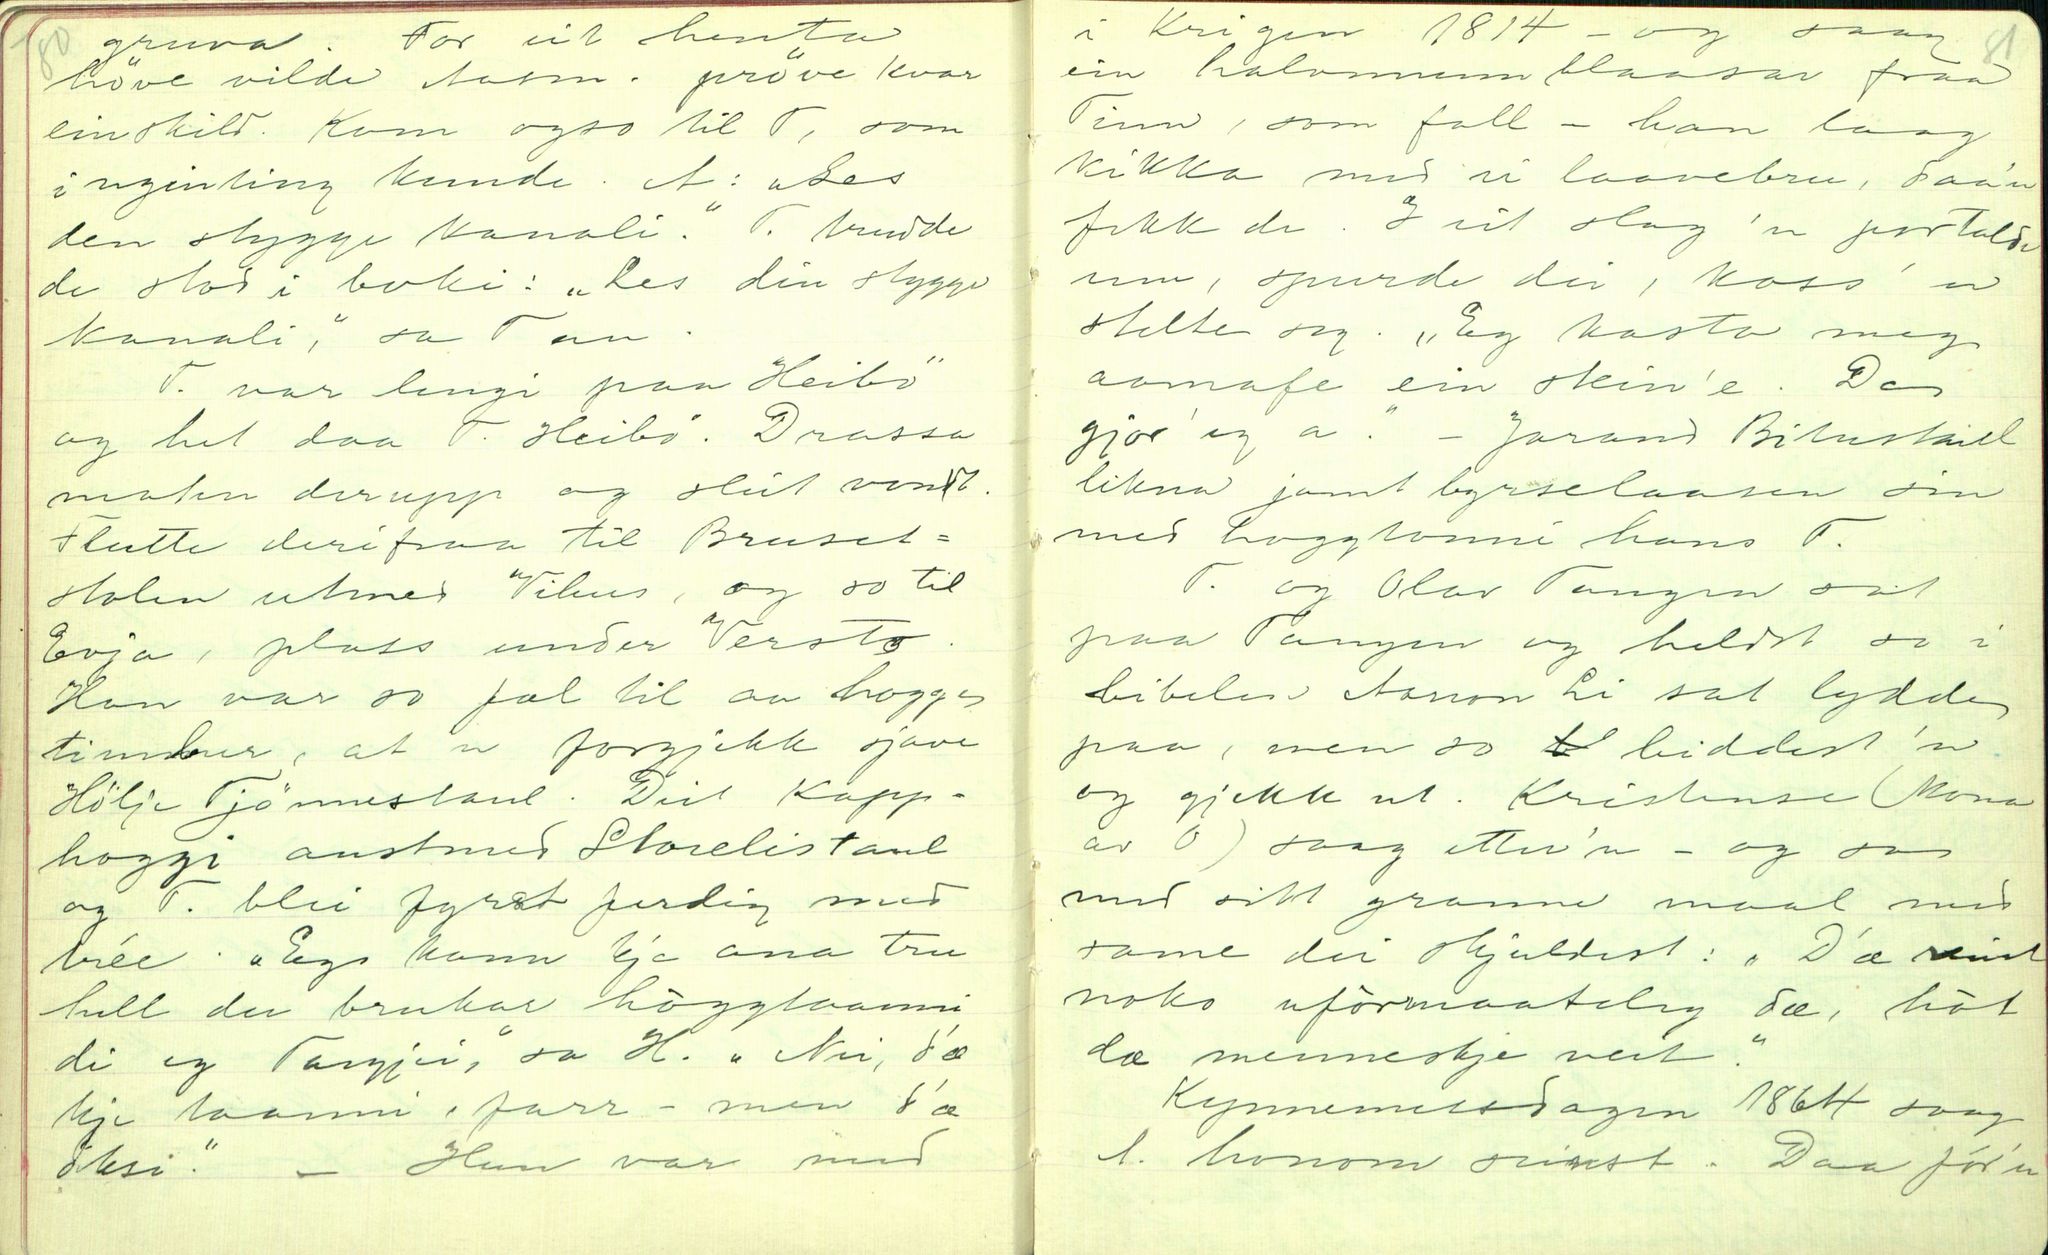 80
gruva. For eit henta
höve vilde Aasm. pröve kvar
einskild. Kom ogso til T, som
inginting kunde. A: „Les
den stygge kanali." T. trudde
de stod i boki: „Les din stygge
kanali," sa Tan.
T. var lengi paa Heibö
og het daa T. Heibö. Drassa
maten derupp og sleit vondt.
Flutte derifraa til Bruset=
stolen utmed Vihus, og so til
Evja, plass under Versto.
Han var so fæl til aa hogge
timber, at 'n forgjekk sjave
Hölje Tjönnestaul. Deit kapp-
hoggi austmed Storelistaul
og T. blei fyrst ferdig med
trée. „Eg kann kje ana tru
hell du brukar höggtaanni
di eg Targjei," sa H. „Nei, d'æ
kje taanni, farr - men d'æ
öksi." - Han var med
81
i Krigen 1814 - og saag
ein halvmumm blaasar fraa
Tinn, som fall - han laag
kikka med ei laavebru, daa'n
fekk de. I eit slag 'n fortalde
um, spurde dei, koss 'n
stelte seg. „Eg kasta meg
aomafe ein skin'e. Da
gjor' eg a." - Jorand Bituskail
likna jamt byrselaasen sin
med hoggtonni hans T.
T. og Olav Tangen sat
paa Tangen og heldt so i
bibelen Aanon Li sat lydde
paa, men so leiddest 'n
og gjekk ut. Kristense (Kona
av O) saag etter'n - og sa
med sitt granne maal med
same dei skjuldest: „D'æ reint
noko uförmaatelig dæ, hòt
dæ menneskje veit."
Kynnemessdagen 1864 saag
A. honom seinst. Daa fór'n